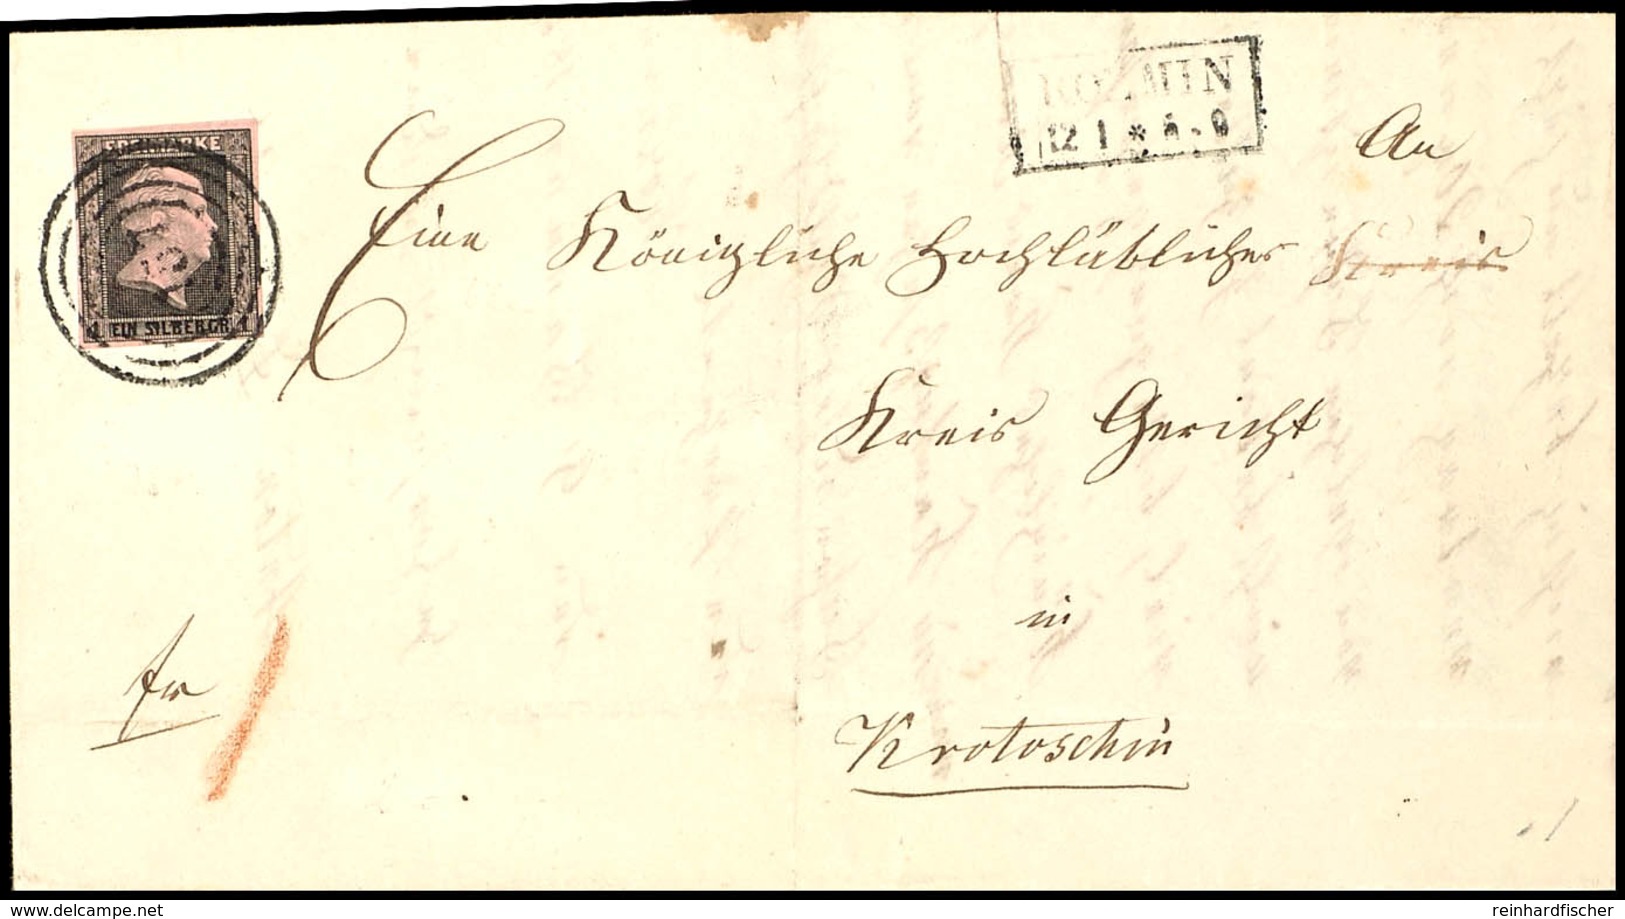 FREIMARKE
1 EIN SILBERGR. 1
KOZMIN
12 1 * 5 - 9
An
Eine Königliche Hochlöbliches Kreis
Kreis Gericht
in
fr
Krotoschin
www.delcampe.net
reinhardfischer